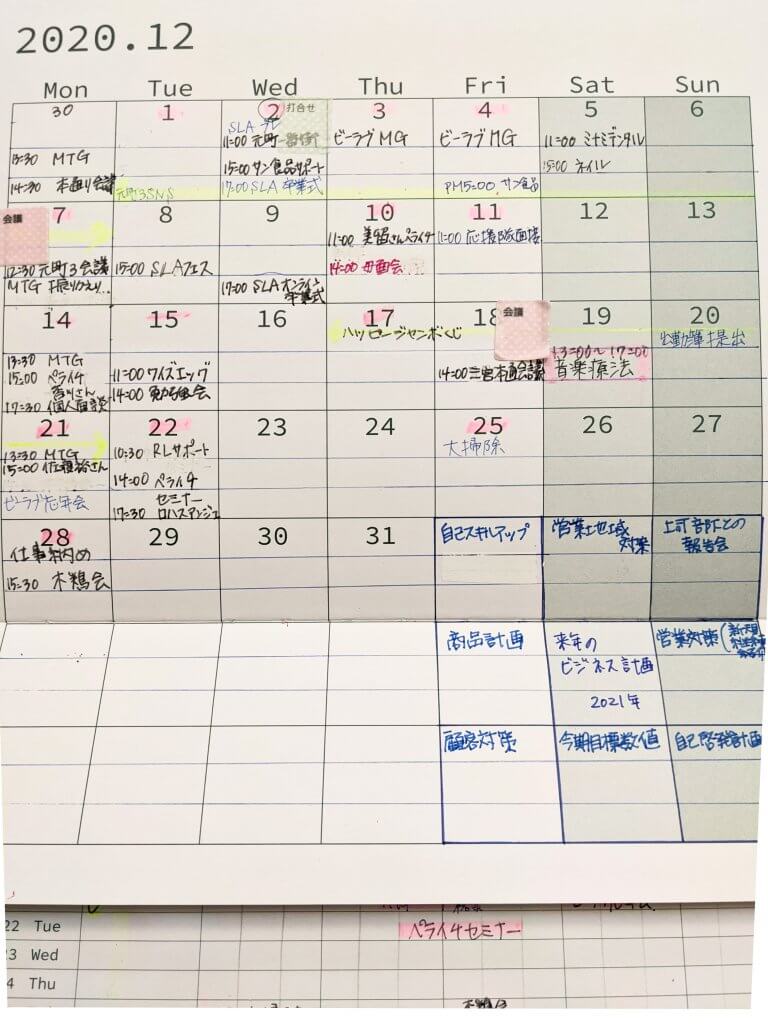 2020.12
Mon Tue Wed Thu Fri Sat Sun
30 1 2 3 4 5 6
打合せ
SLA
11:00 元町一番街
ビーラブMG
ビーラブMG
11:00 ミナミデンタル
13:30 MTG
15:00 サン食品サポート
15:00 ネイル
14:30 本通り会議
元町3SNS
17:00 SLA 卒業式
PM5:00 サン食品
会議
7 8 9 10 11 12 13
11:00 美留さんペライチ
11:00 応援隊面接
12:30 元町3会議
15:00 SLAフェス
14:00
MTG 振りかえり...
17:00 SLA オンライン
卒業式
14 15 16 17 18 19 20
会議
ハッピージャンボくじ
出勤簿提出
13:30 MTG
13:00〜17:00
15:00 ペライチ
11:00 ワイズエッグ
14:00 三宮本通会議
音楽療法
香川さん
14:00 勉強会
17:30 個人面談
21 22 23 24 25 26 27
13:30 MTG
10:30 RLサポート
大掃除
15:00 佐穂裕さん
14:00 ペライチ
セミナー
ビーラブ忘年会
17:30 ロハスアンジェ
28 29 30 31
仕事納め
自己スキルアップ
営業地域
対策
上司部下との
報告会
15:30 木鶏会
商品計画
来年の
ビジネス計画
2021年
営業対策
顧客対策
今期目標数値
自己啓発計画
22 Tue
ペライチセミナー
23 Wed
4 Thu